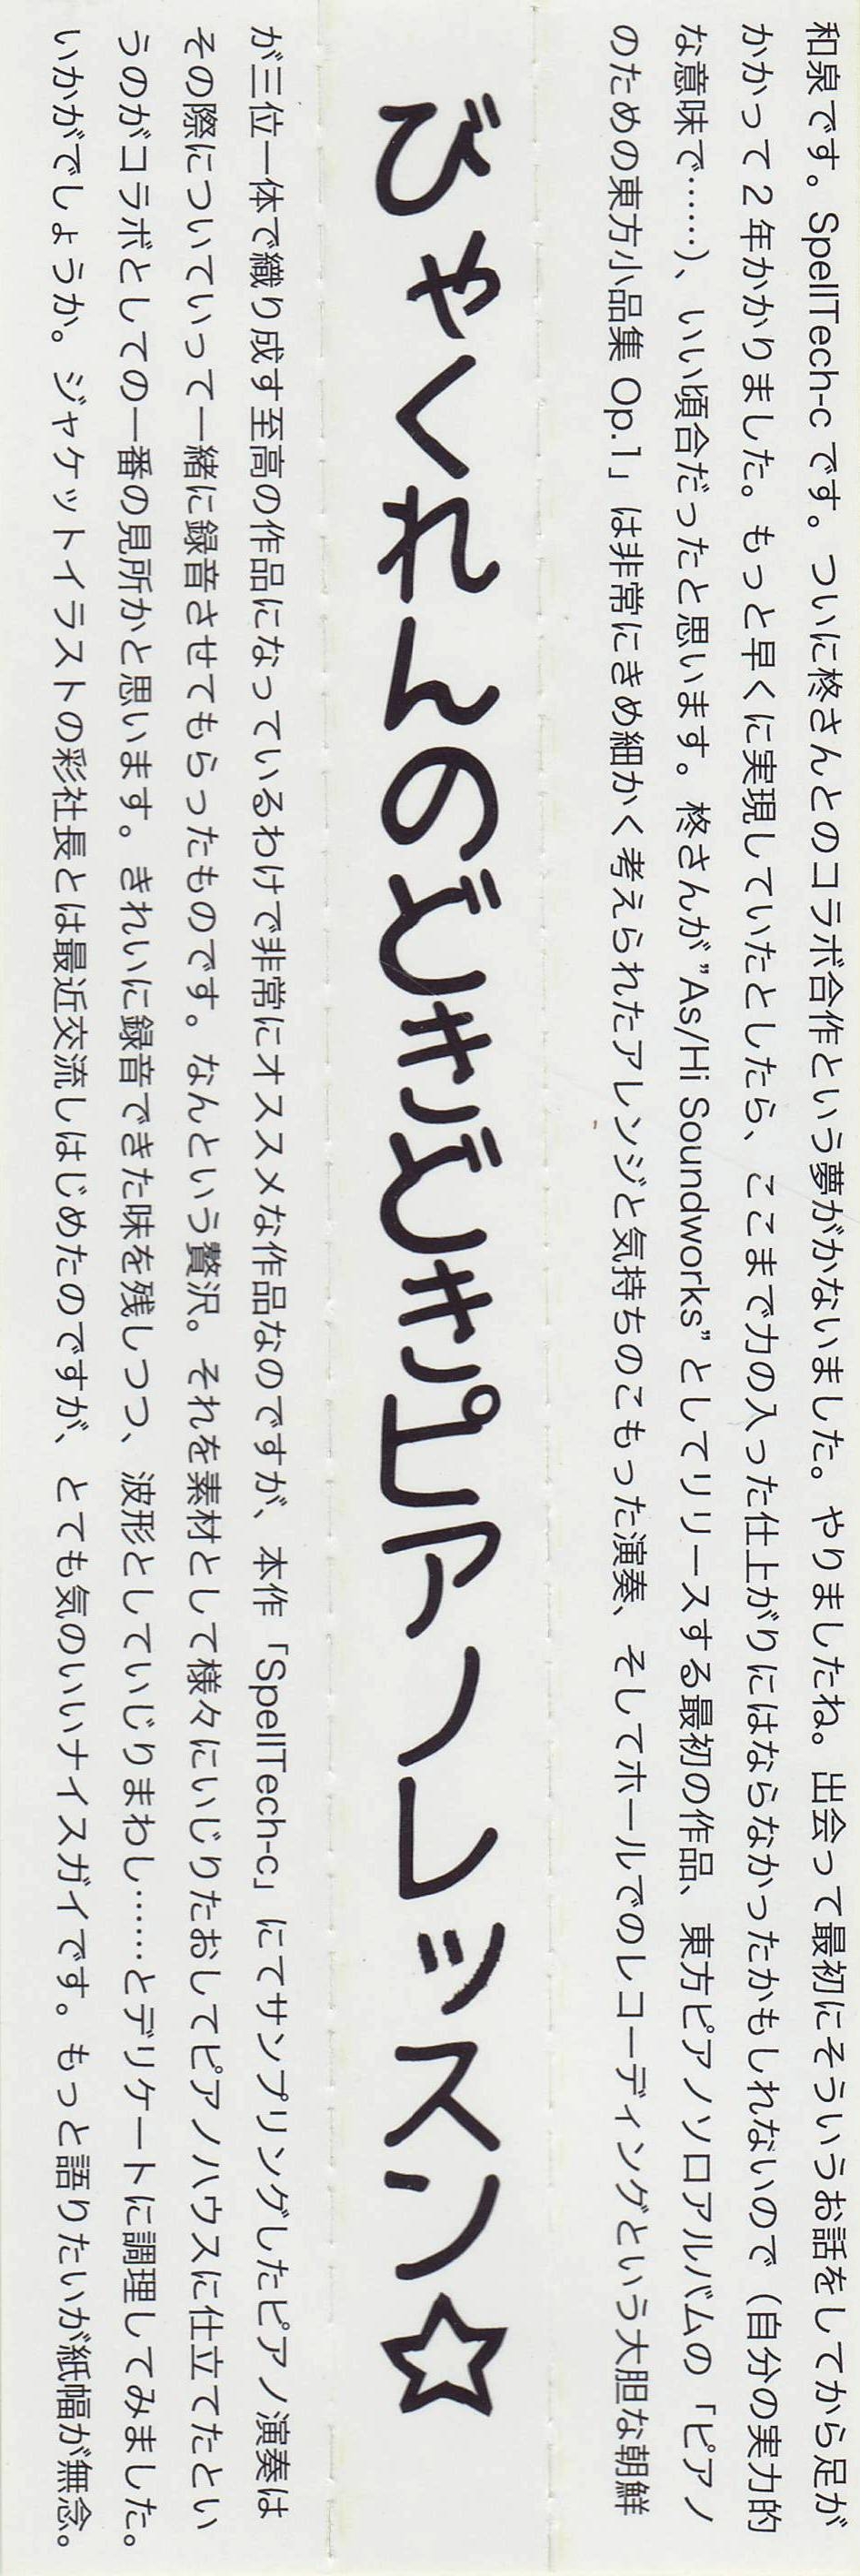 和泉です。SpellTech-c です。ついに柊さんとのコラボ合作という夢がかないました。やりましたね。出会って最初にそういうお話をしてから足が
かかって 2 年かかりました。もっと早くに実現していたとしたら、ここまで力の入った仕上がりにはならなかったかもしれないので（自分の実力的
な意味で……）、いい頃合だったと思います。柊さんが ”As/Hi Soundworks” としてリリースする最初の作品、東方ピアノソロアルバムの「ピアノ
のための東方小品集 Op.1」は非常にきめ細かく考えられたアレンジと気持ちのこもった演奏、そしてホールでのレコーディングという大胆な朝鮮
びゃくれんのどきどきピアノレッスン☆
が三位一体で織り成す至高の作品になっているわけで非常にオススメな作品なのですが、本作「SpellTech-c」にてサンプリングしたピアノ演奏は
その際についていって一緒に録音させてもらったものです。なんという贅沢。それを素材として様々にいじりたおしてピアノハウスに仕立てたとい
うのがコラボとしての一番の見所かと思います。きれいに録音できた味を残しつつ、波形としていじりまわし……とデリケートに調理してみました。
いかがでしょうか。ジャケットイラストの彩社長とは最近交流しはじめたのですが、とても気のいいナイスガイです。もっと語りたいが紙幅が無念。